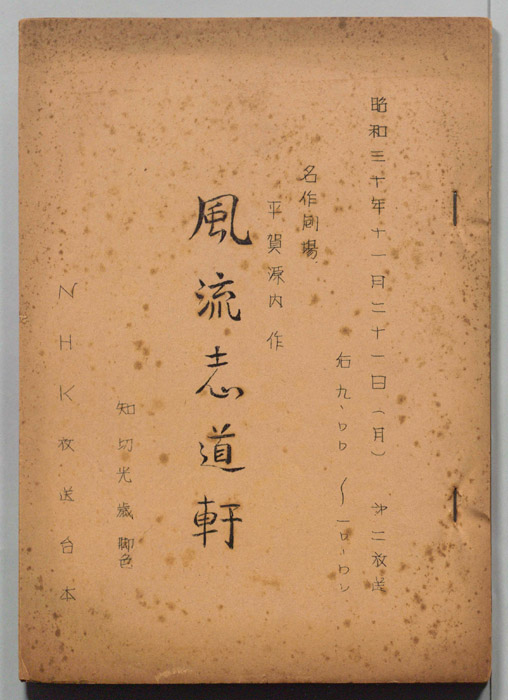 昭和三十年十一月二十一日(月) 第二放送
后九、〇〇〜一〇、〇〇
名作劇場
平賀源内作
風流志道軒
知切光歳 脚色
NHK放送台本